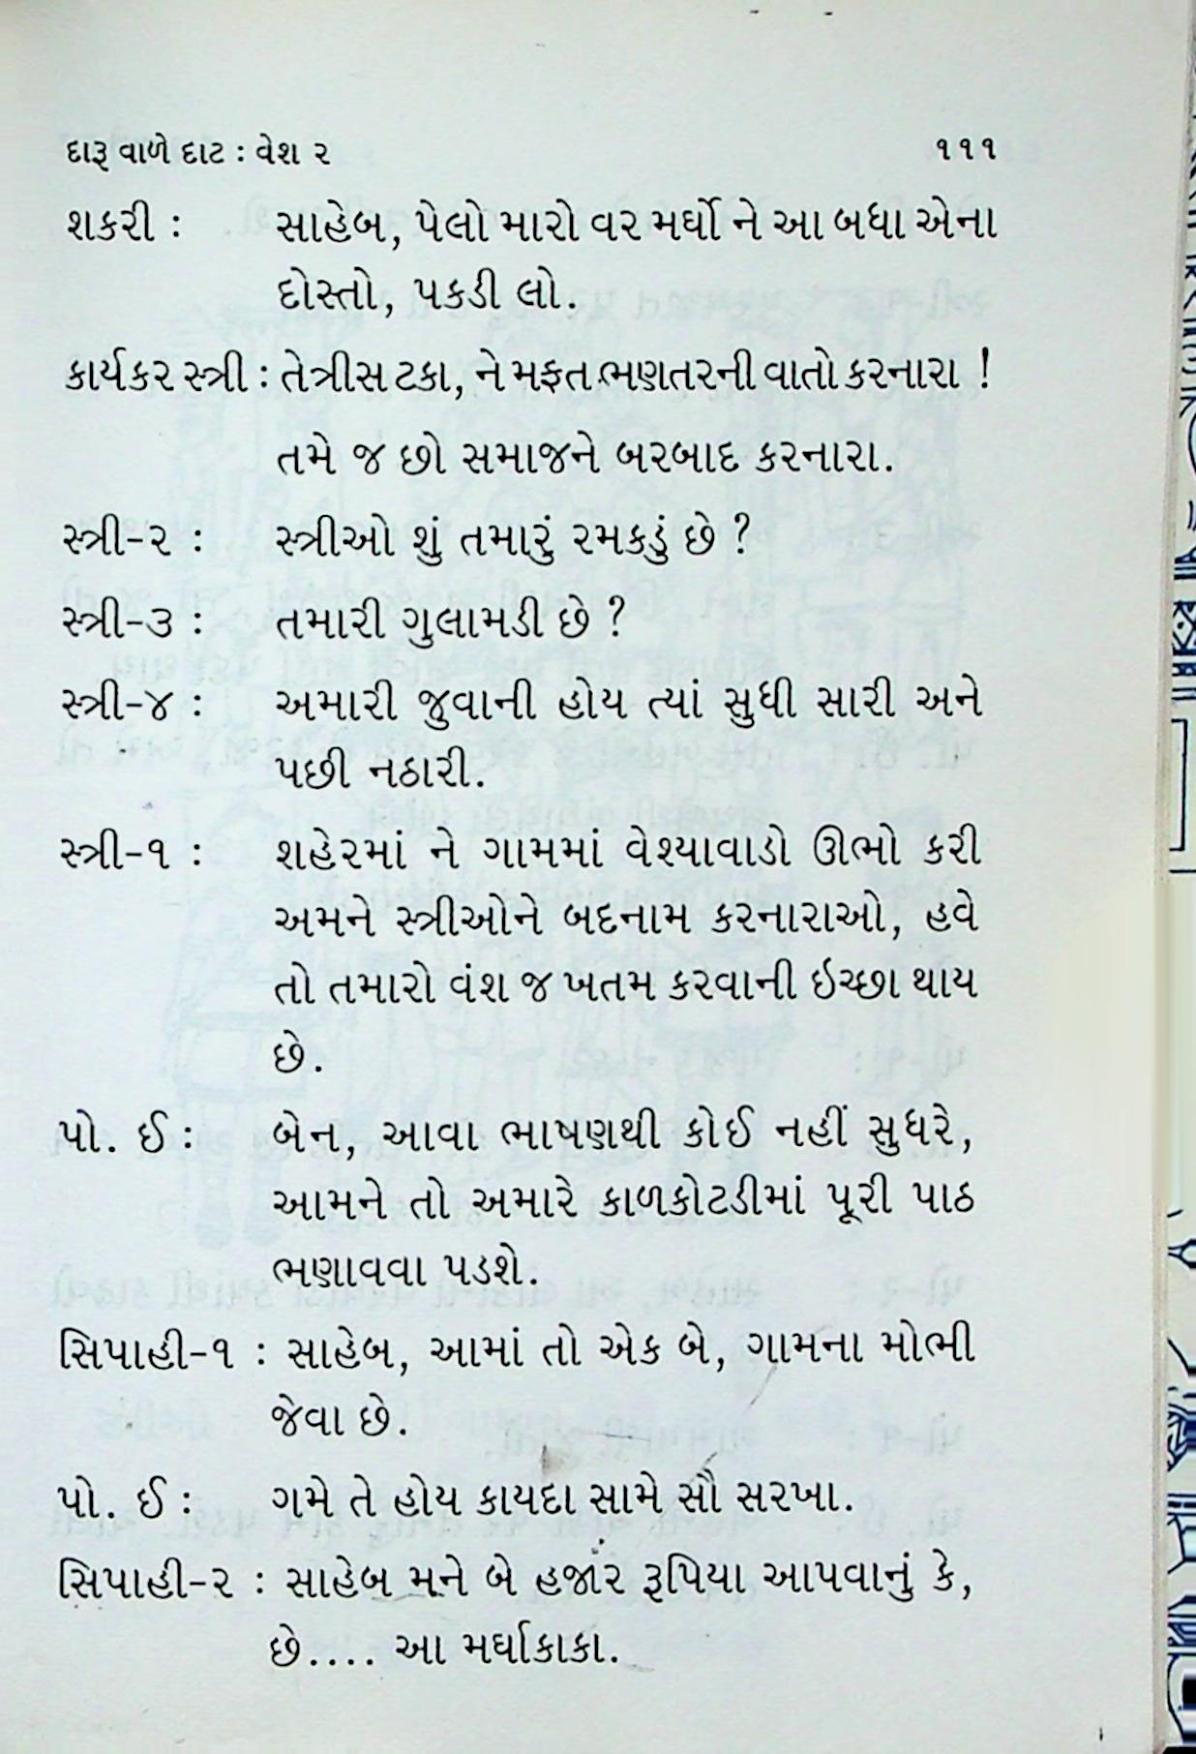 દારૂ વાળે દાટ : વેશ ૨ ૧૧૧
શકરી : સાહેબ, પેલો મારો વર મર્ઘો ને આ બધા એના
દોસ્તો, પકડી લો.
કાર્યકર સ્ત્રી : તેત્રીસ ટકા, ને મફત ભણતરની વાતો કરનારા !
તમે જ છો સમાજને બરબાદ કરનારા.
સ્ત્રી-૨ : સ્ત્રીઓ શું તમારું રમકડું છે ?
સ્ત્રી-૩ : તમારી ગુલામડી છે ?
સ્ત્રી-૪ : અમારી જુવાની હોય ત્યાં સુધી સારી અને
પછી નઠારી.
સ્ત્રી-૧ : શહેરમાં ને ગામમાં વેશ્યાવાડો ઊભો કરી
અમને સ્ત્રીઓને બદનામ કરનારાઓ, હવે
તો તમારો વંશ જ ખતમ કરવાની ઇચ્છા થાય
છે.
પો. ઈ : બેન, આવા ભાષણથી કોઈ નહીં સુધરે,
આમને તો અમારે કાળકોટડીમાં પૂરી પાઠ
ભણાવવા પડશે.
સિપાહી-૧ : સાહેબ, આમાં તો એક બે, ગામના મોભી
જેવા છે.
પો. ઈ : ગમે તે હોય કાયદા સામે સૌ સરખા.
સિપાહી-૨ : સાહેબ મને બે હજાર રૂપિયા આપવાનું કે,
છે.... આ મર્ઘાકાકા.